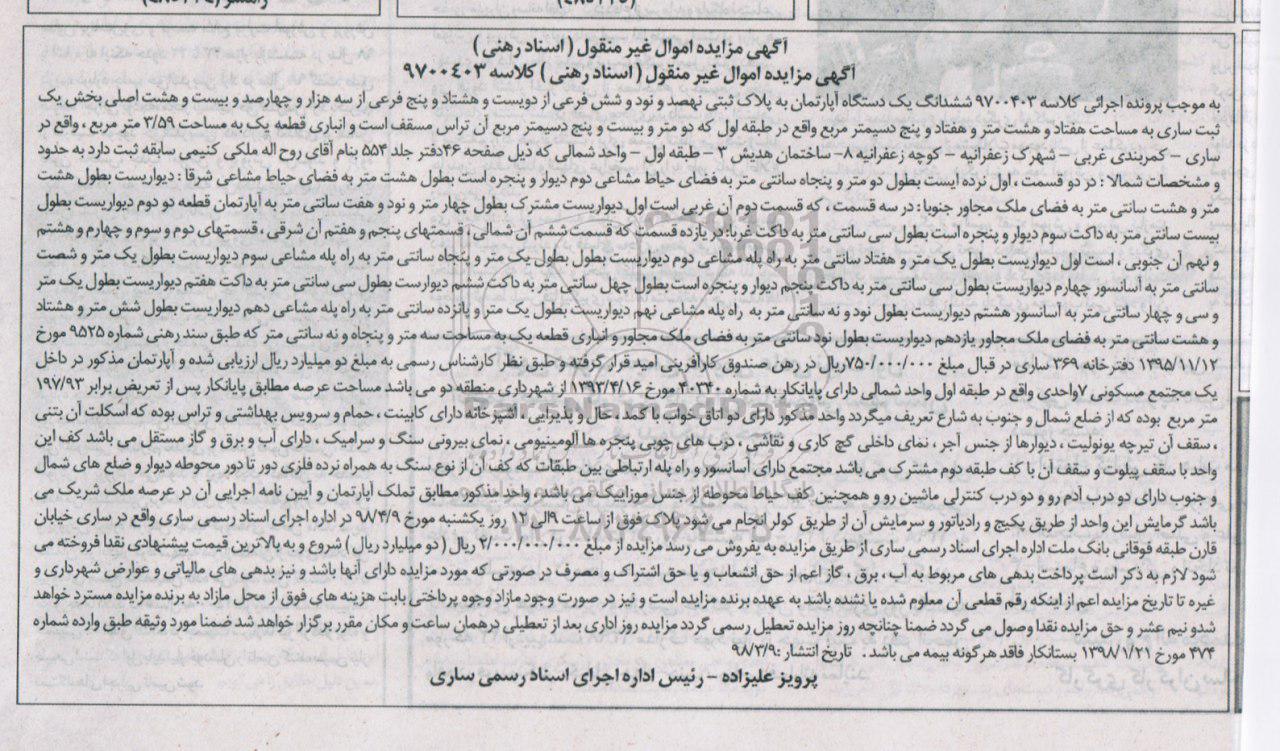 آگهی مزایده اموال غیر منقول ( اسناد رهنی )
آگهی مزایده اموال غیر منقول ( اسناد رهنی ) کلاسه ۹۷۰۰۴۰۳
به موجب پرونده اجرائی کلاسه ۹۷۰۰۴۰۳ ششدانگ یک دستگاه آپارتمان به پلاک ثبتی نهصد و نود و شش فرعی از دویست و هشتاد و پنج فرعی از سه هزار و چهارصد و بیست و هشت اصلی بخش یک
ثبت ساری به مساحت هفتاد و هشت متر و هفتاد و پنج دسیمتر مربع واقع در طبقه اول که دو متر و بیست و پنج دسیمتر مربع آن تراس مسقف است و انباری قطعه یک به مساحت ۳/۵۹ متر مربع ، واقع در
ساری – کمربندی غربی – شهرک زعفرانیه – کوچه زعفرانیه ۸– ساختمان هدیش ۳ – طبقه اول – واحد شمالی که ذیل صفحه ۴۶دفتر جلد ۵۵۴ بنام آقای روح اله ملکی کنیمی سابقه ثبت دارد به حدود
و مشخصات شمالا : در دو قسمت ، اول نرده ایست بطول دو متر و پنجاه سانتی متر به فضای حیاط مشاعی دوم دیوار و پنجره است بطول هشت متر به فضای حیاط مشاعی شرقا : دیواریست بطول هشت
متر و هشت سانتی متر به فضای ملک مجاور جنوبا : در سه قسمت ، که قسمت دوم آن غربی است اول دیواریست مشترک بطول چهار متر و نود و هفت سانتی متر به آپارتمان قطعه دو دوم دیواریست بطول
بیست سانتی متر به داکت سوم دیوار و پنجره است بطول سی سانتی متر به داکت غربا: در یازده قسمت که قسمت ششم آن شمالی ، قسمتهای پنجم و هفتم آن شرقی ، قسمتهای دوم و سوم و چهارم و هشتم
و نهم آن جنوبی ، است اول دیواریست بطول یک متر و هفتاد سانتی متر به راه پله مشاعی دوم دیواریست بطول بطول یک متر و پنجاه سانتی متر به راه پله مشاعی سوم دیواریست بطول یک متر و شصت
سانتی متر به آسانسور چهارم دیواریست بطول سی سانتی متر به داکت پنجم دیوار و پنجره است بطول چهل سانتی متر به داکت ششم دیوارست بطول سی سانتی متر به داکت هفتم دیواریست بطول یک متر
و سی و چهار سانتی متر به آسانسور هشتم دیواریست بطول نود و نه سانتی متر به راه پله مشاعی نهم دیواریست بطول یک متر و پانزده سانتی متر به راه پله مشاعی دهم دیواریست بطول شش متر و هشتاد
و هشت سانتی متر به فضای ملک مجاور یازدهم دیواریست بطول نود سانتی متر به فضای ملک مجاور و انباری قطعه یک به مساحت سه متر و پنجاه و نه سانتی متر که طبق سند رهنی شماره ۹۵۲۵ مورخ
۱۳۹۵/۱۱/۱۲ دفترخانه ۳۶۹ ساری در قبال مبلغ ۷۵۰/۰۰۰/۰۰۰ریال در رهن صندوق کارآفرینی امید قرار گرفته و طبق نظر کارشناس رسمی به مبلغ دو میلیارد ریال ارزیابی شده و آپارتمان مذکور در داخل
یک مجتمع مسکونی ۷واحدی واقع در طبقه اول واحد شمالی دارای پایانکار به شماره ۴۰۳۴۰ مورخ ۱۳۹۳/۴/۱۶ از شهرداری منطقه دو می باشد مساحت عرصه مطابق پایانکار پس از تعریض برابر ۱۹۷/۹۳
متر مربع بوده که از ضلع شمال و جنوب به شارع تعریف میگردد واحد مذکور دارای دو اتاق خواب با کمد ، حال و پذیرایی ، اشپزخانه دارای کابینت ، حمام و سرویس بهداشتی و تراس بوده که اسکلت آن بتنی
، سقف آن تیرچه یونولیت ، دیوارها از جنس آجر ، نمای داخلی گچ کاری و نقاشی ، درب های چوبی پنجره ها آلومینیومی ، نمای بیرونی سنگ و سرامیک ، دارای آب و برق و گاز مستقل می باشد کف این
واحد با سقف پیلوت و سقف آن با کف طبقه دوم مشترک می باشد مجتمع دارای آسانسور و راه پله ارتباطی بین طبقات که کف آن از نوع سنگ به همراه نرده فلزی دور تا دور محوطه دیوار و ضلع های شمال
و جنوب دارای دو درب آدم رو و دو درب کنترلی ماشین رو و همچنین کف حیاط محوطه از جنس موزاییک می باشد، واحد مذکور مطابق تملک آپارتمان و آیین نامه اجرایی آن در عرصه ملک شریک می
باشد گرمایش این واحد از طریق پکیج و رادیاتور و سرمایش آن از طریق کولر انجام می شود پلاک فوق از ساعت ۹الی ۱۲ روز یکشنبه مورخ ۹۸/۴/۹ در اداره اجرای اسناد رسمی ساری واقع در ساری خیابان
قارن طبقه فوقانی بانک ملت اداره اجرای اسناد رسمی ساری از طریق مزایده به یفروش می رسد مزایده از مبلغ ۲/۰۰۰/۰۰۰/۰۰۰ ریال ( دو میلیارد ریال ) شروع و به بالاترین قیمت پیشنهادی نقدا فروخته می
شود لازم به ذکر است پرداخت بدهی های مربوط به آب ، برق ، گاز اعم از حق انشعاب و یا حق اشتراک و مصرف در صورتی که مورد مزایده دارای آنها باشد و نیز بدهی های مالیاتی و عوارض شهرداری و
غیره تا تاریخ مزایده اعم از اینکه رقم قطعی آن معلوم شده یا نشده باشد به عهده برنده مزایده است و نیز در صورت وجود مازاد وجوه پرداختی بابت هزینه های فوق از محل مازاد به برنده مزایده مسترد خواهد
شدو نیم عشر و حق مزایده نقدا وصول می گردد ضمنا چنانچه روز مزایده تعطیل رسمی گردد مزایده روز اداری بعد از تعطیلی درهمان ساعت و مکان مقرر برگزار خواهد شد ضمنا مورد وثیقه طبق وارده شماره
۴۷۴ مورخ ۱۳۹۸/۱/۲۱ بستانکار فاقد هرگونه بیمه می باشد . تاریخ انتشار :۹۸/۳/۹
پرویز علیزاده – رئیس اداره اجرای اسناد رسمی ساری